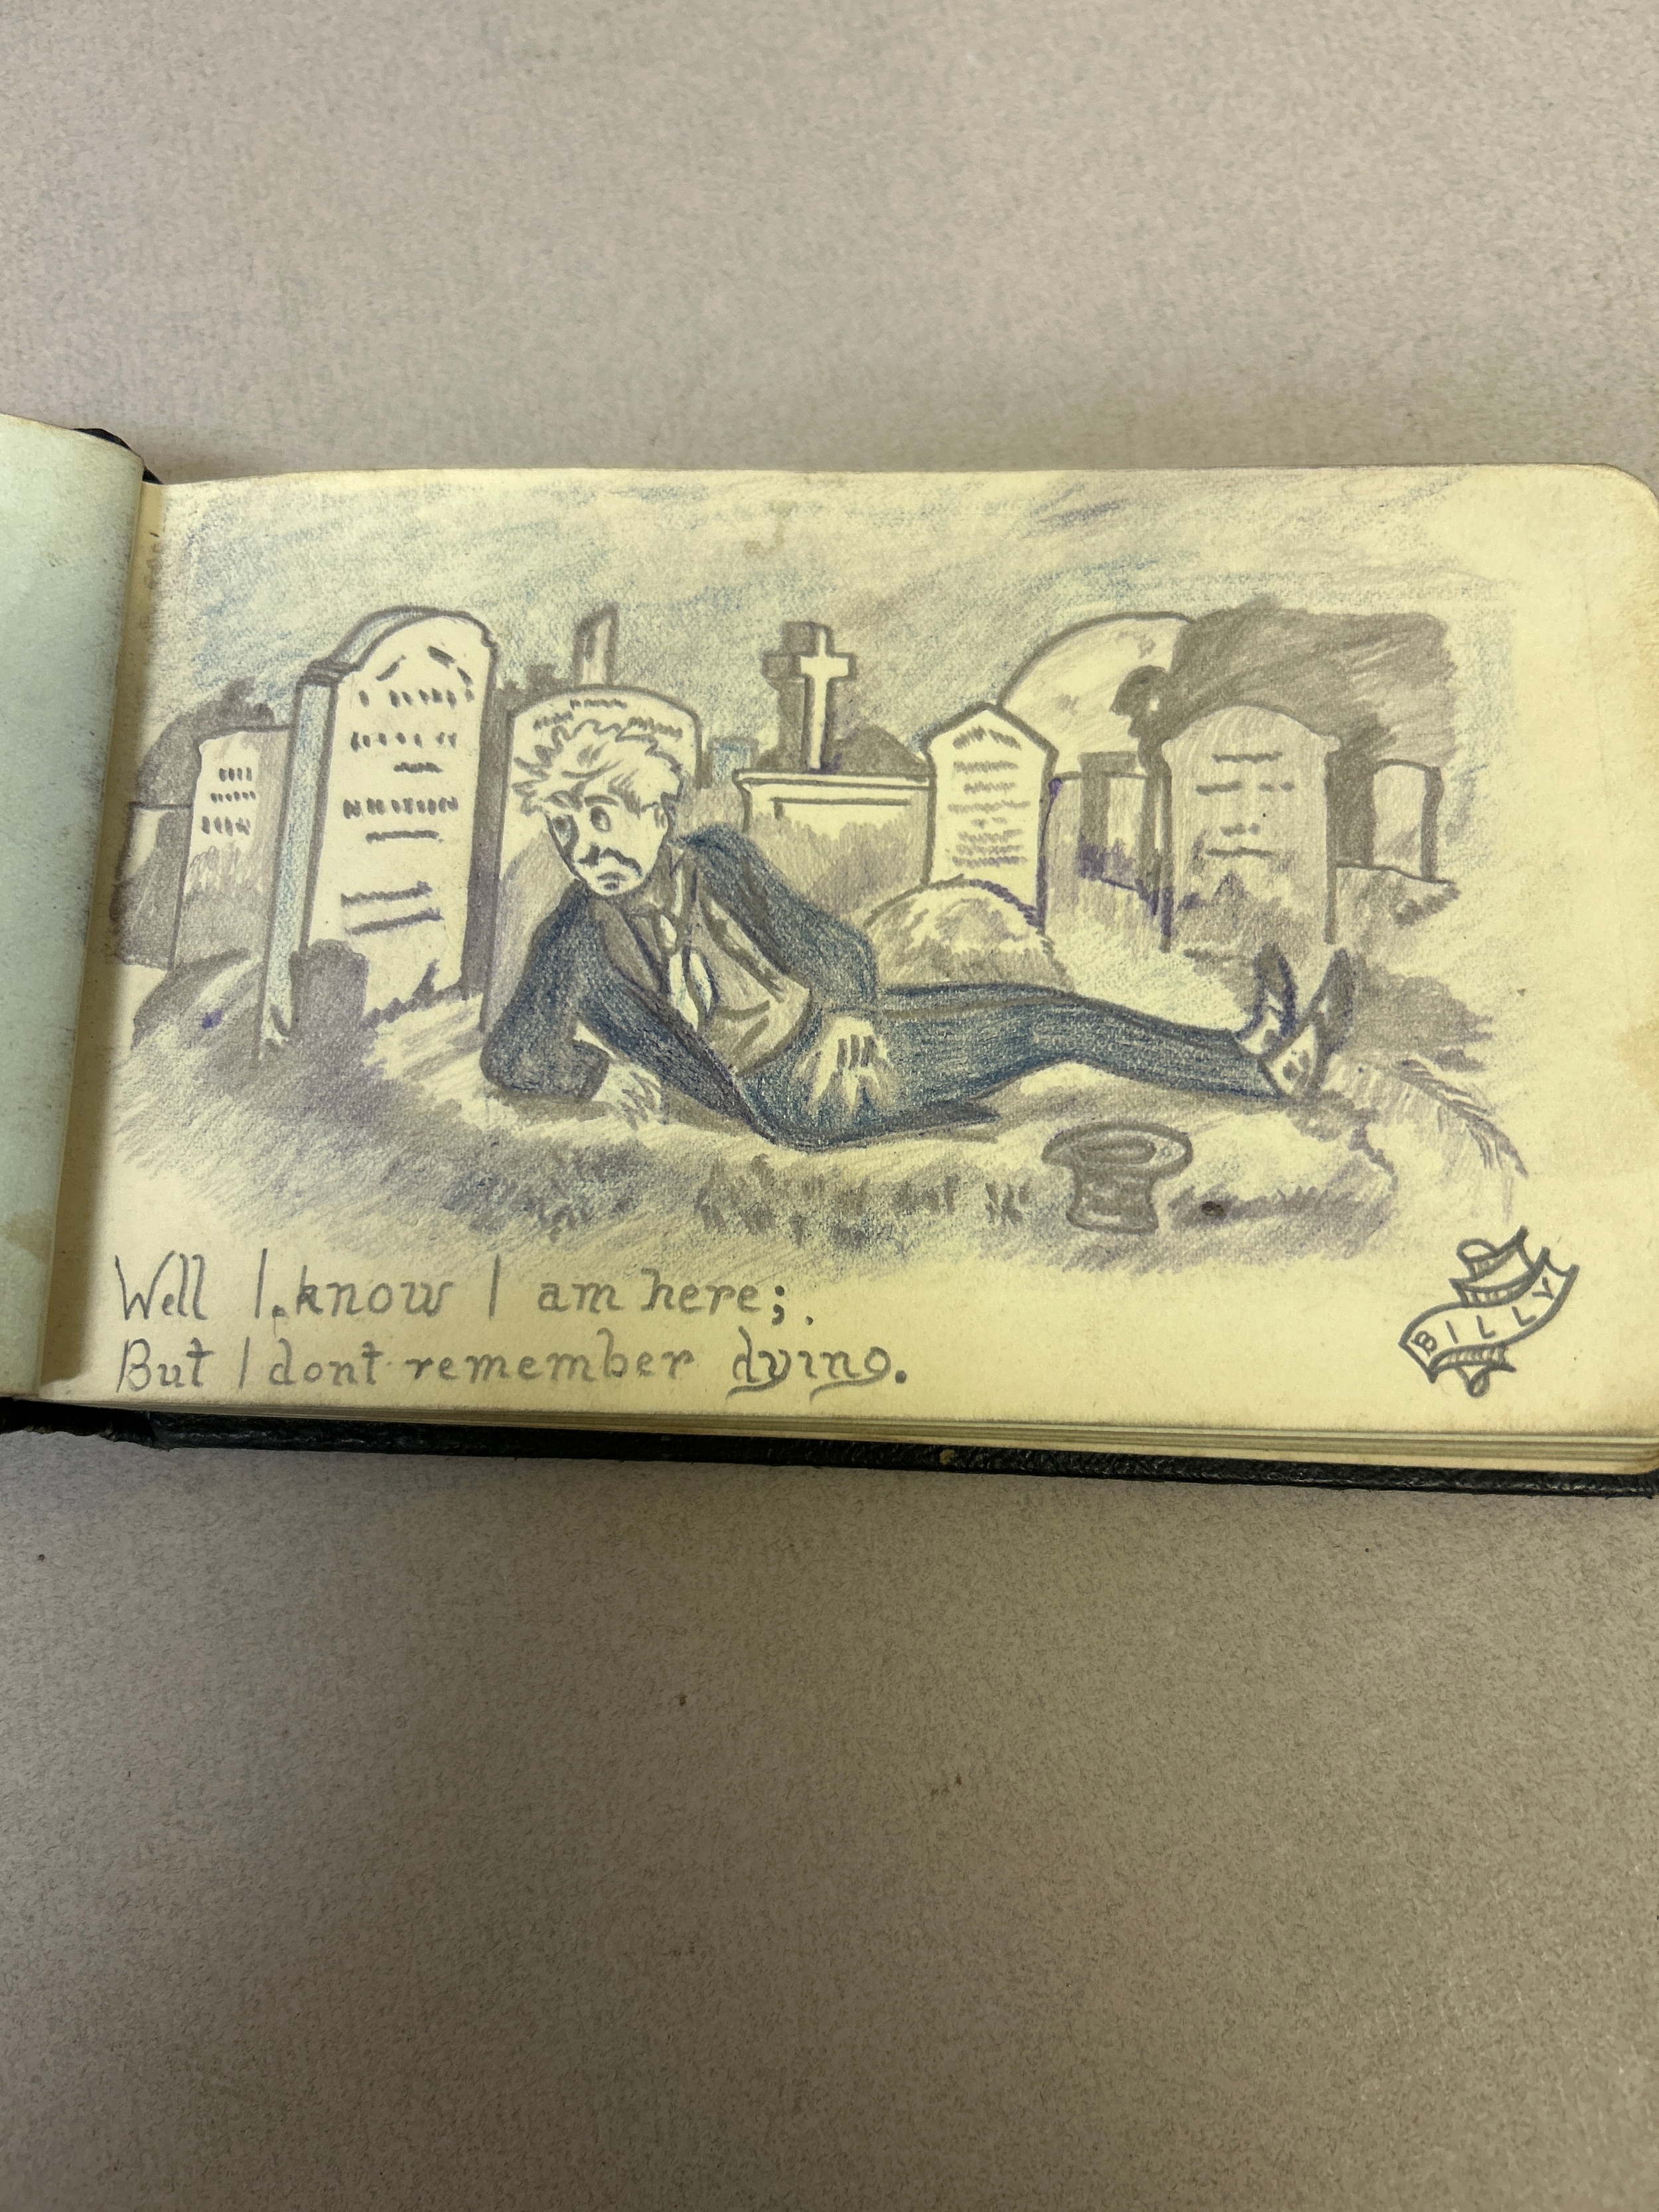 Well I know I am here;.
But I dont remember dying.
BILLY